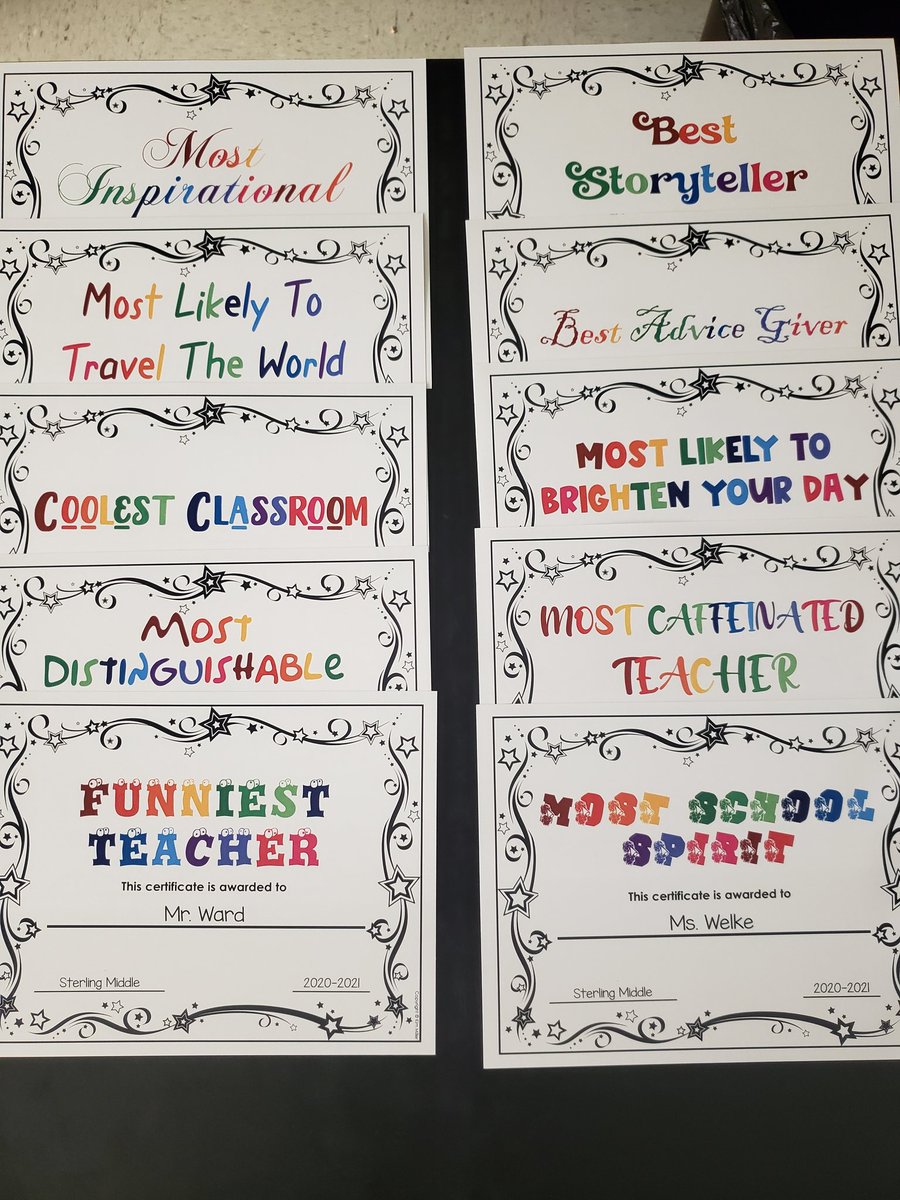 Most
Inspirational
Most Likely To
Travel The World
Coolest Classroom
Most
Distinguishable
FUNNIEST
TEACHER
This certificate is awarded to
Mr. Ward
Sterling Middle
2020-2021
Best
Storyteller
Best Advice Giver
MOST LIKELY TO
BRIGHTEN YOUR DAY
MOST CAFFEINATED
TEACHER
MOST SCHOOL
SPIRIT
This certificate is awarded to
Ms. Welke
Sterling Middle
2020-2021